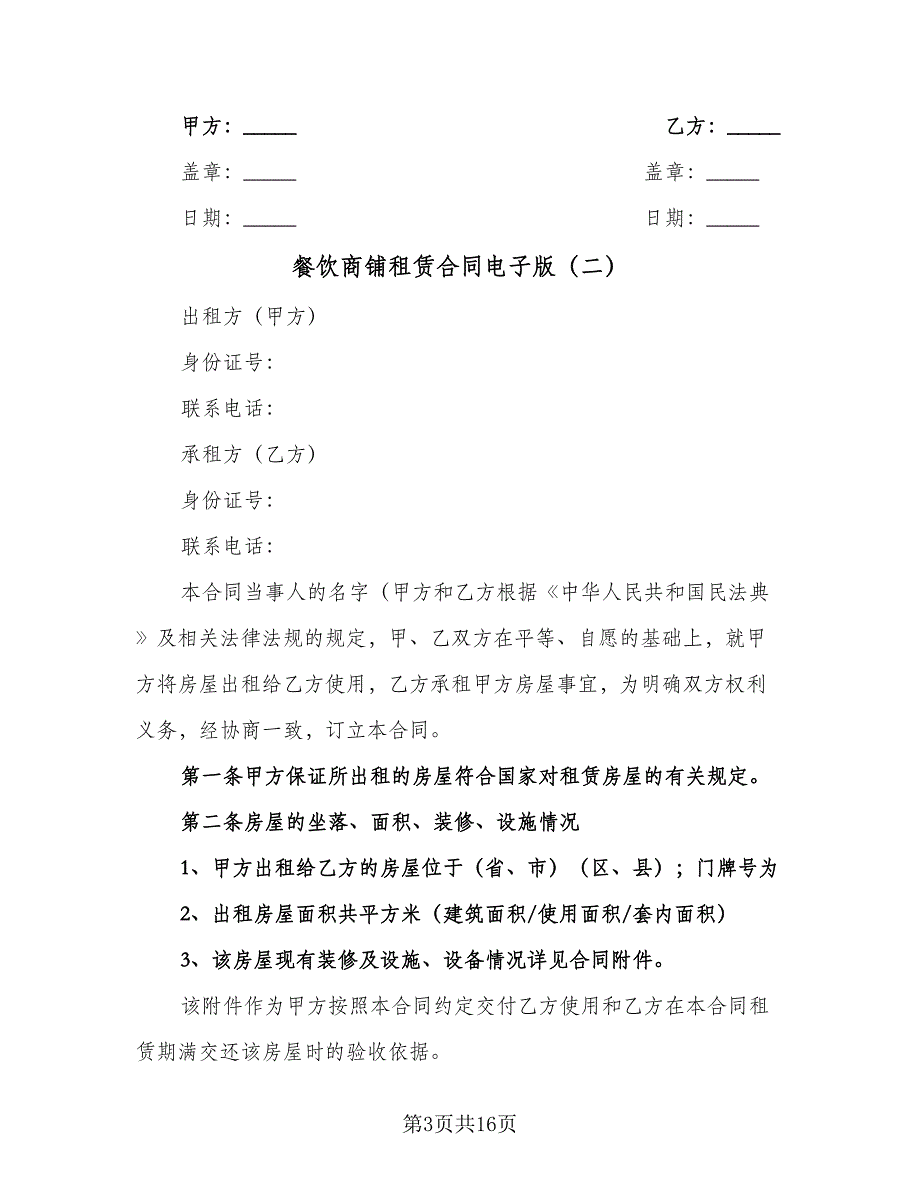 甲方：_____ 乙方：_____
盖章：_____ 盖章：_____
日期：_____ 日期：_____
餐饮商铺租赁合同电子版（二）
出租方（甲方）
身份证号：
联系电话：
承租方（乙方）
身份证号：
联系电话：
本合同当事人的名字（甲方和乙方根据《中华人民共和国民法典
》及相关法律法规的规定，甲、乙双方在平等、自愿的基础上，就甲
方将房屋出租给乙方使用，乙方承租甲方房屋事宜，为明确双方权利
义务，经协商一致，订立本合同。
第一条甲方保证所出租的房屋符合国家对租赁房屋的有关规定。
第二条房屋的坐落、面积、装修、设施情况
1、甲方出租给乙方的房屋位于（省、市）（区、县）；门牌号为
2、出租房屋面积共平方米（建筑面积/使用面积/套内面积）
3、该房屋现有装修及设施、设备情况详见合同附件。
该附件作为甲方按照本合同约定交付乙方使用和乙方在本合同租
赁期满交还该房屋时的验收依据。
第3页共16页